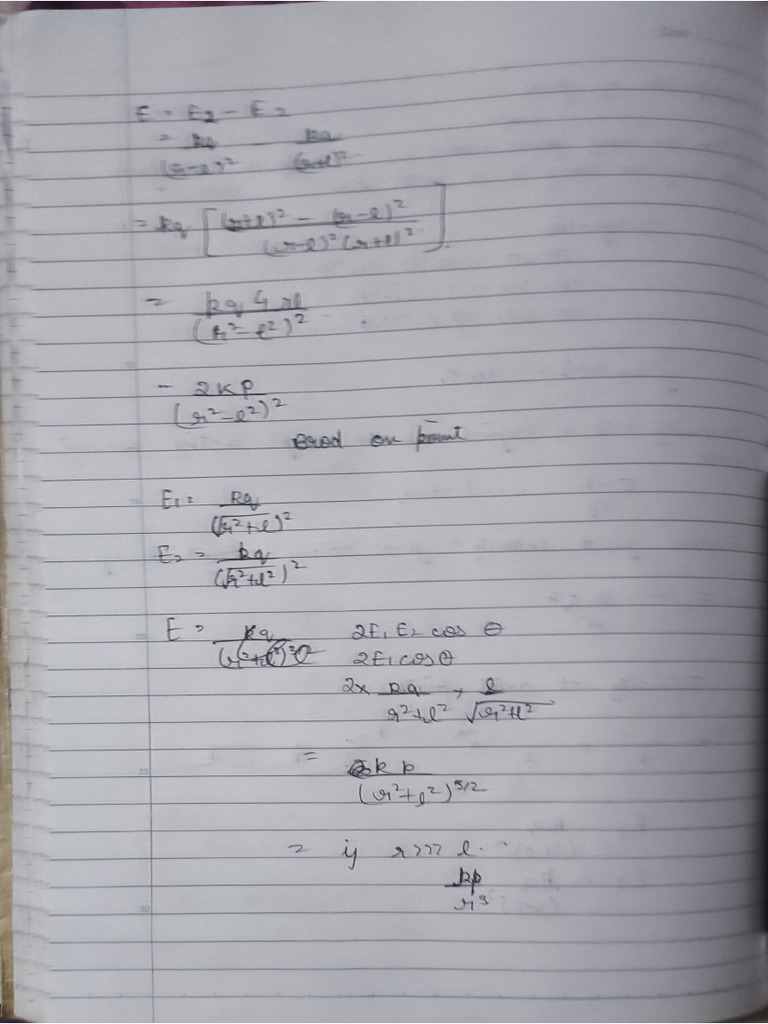 E = E2 - E2
= kq/(r-l)² - kq/(r+l)²
= kq [ ((r+l)² - (r-l)²) / ((r-l)² (r+l)²) ]
= kq 4 rl / (r² - l²)²
- 2kp / (r² - l²)²
on point
E1 = kq / (√r²+l)²
E2 = kq / (√r²+l²)²
E = kq 2E1 E2 cos θ
2E1 cos θ
2 x kq / r²+l² x l / √r²+l²
= kp / (r²+l²)^3/2
= if r>>> l.
kp / r³